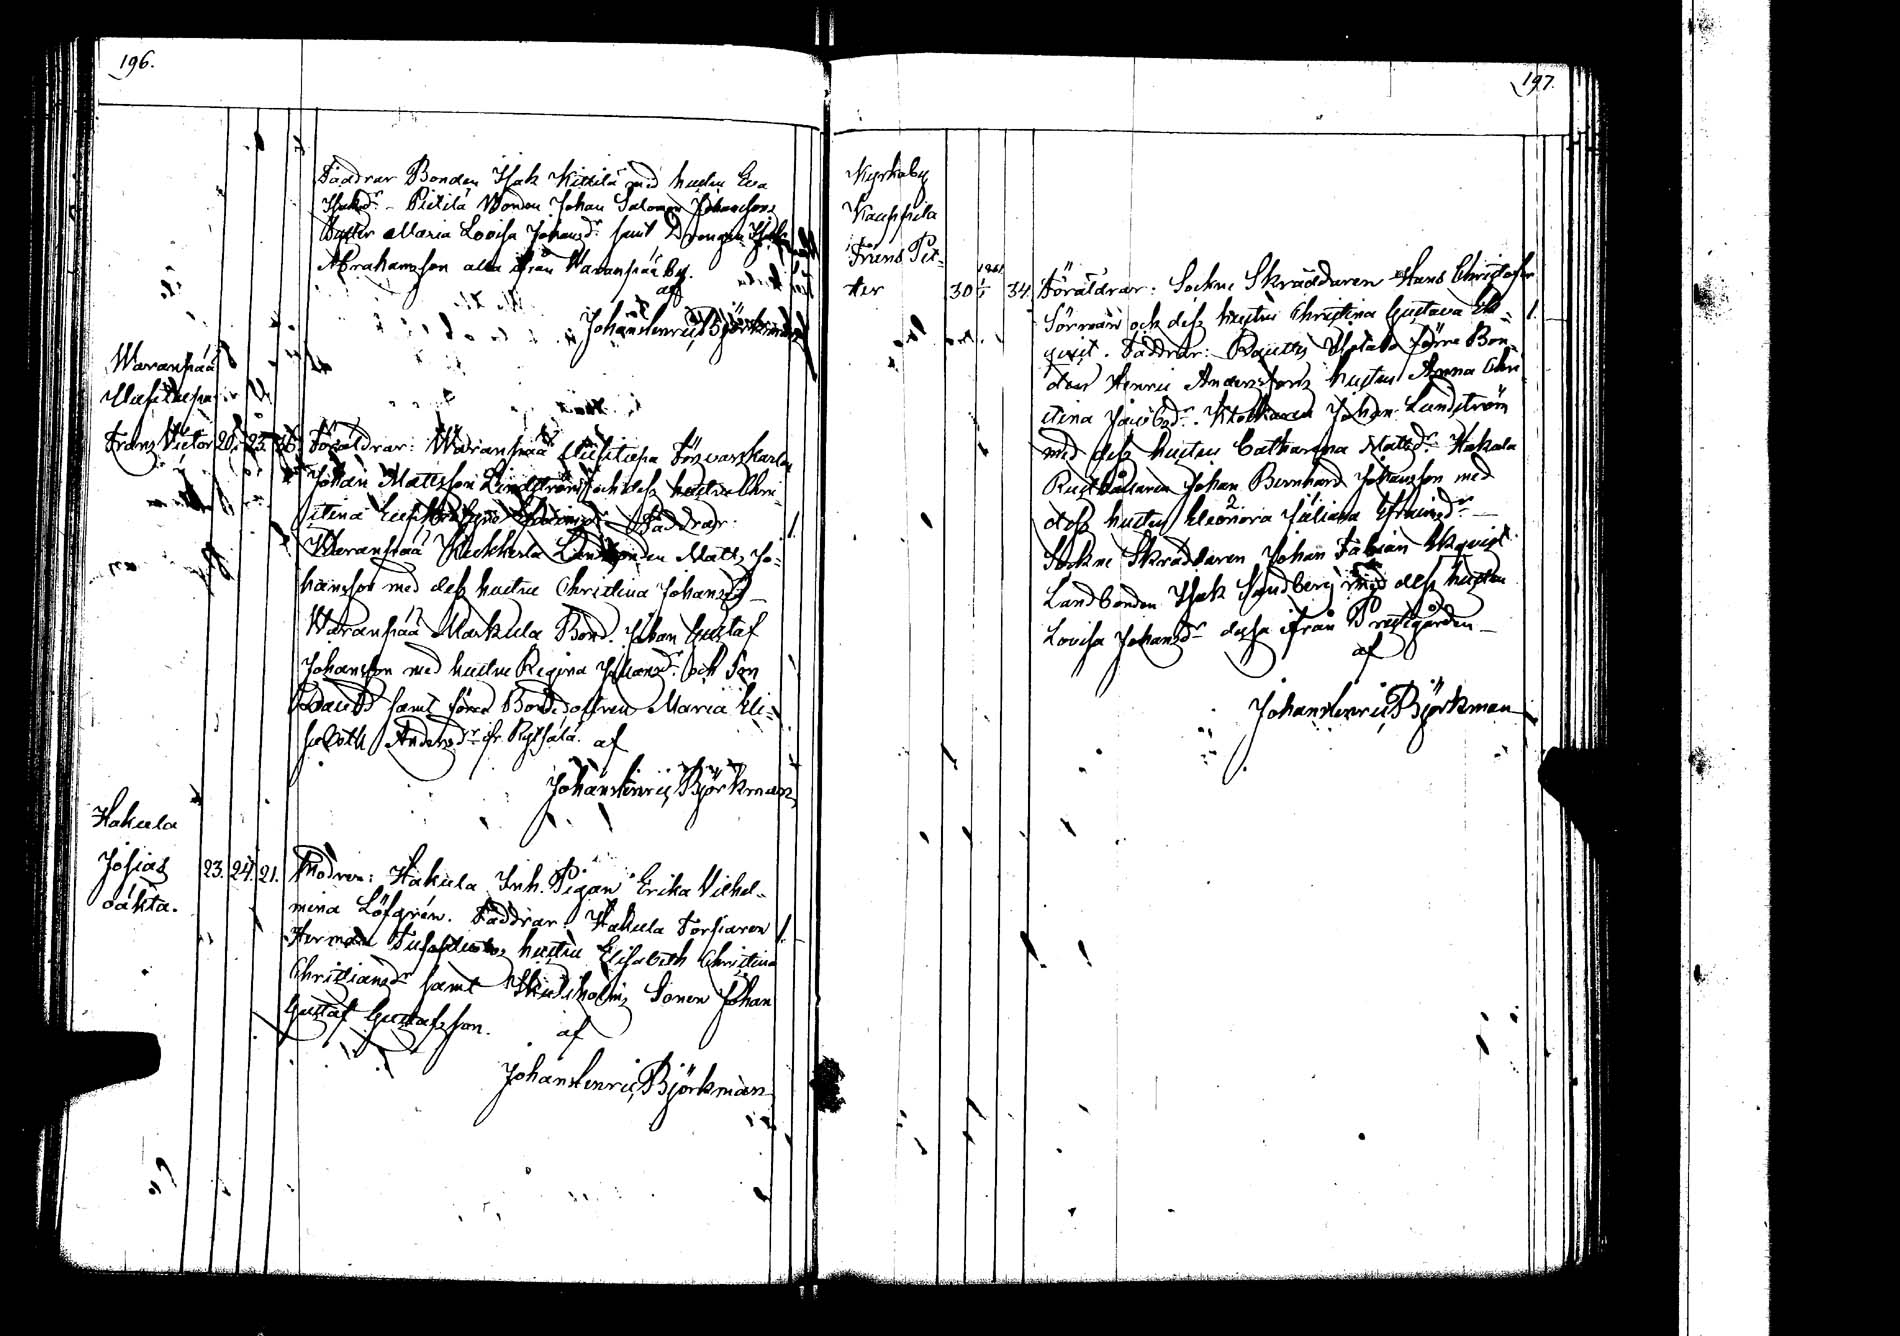 196.
Faddrar Bonden Isak Kittilä med hustru Eva
Isaksdr - Pietilä Bonden Johan Salomon Johansson
Dotter Maria Lovisa Johansdr samt Drengen Isak
Abrahamsson alla ifrån Waranpää by.
af
Johan Henric Björkman
Waranpää
Frans Victor 20. 23. 36. Föräldrar: Waranpää
Johan Mattsson Lindström och dess hustru Chri
stina Faddrar: 1.
Waranpää Matts Jo=
hansson med dess hustru Christina Johansdr
Waranpää Markula Bond. Johan Gustaf
Johansson med hustru Regina Johansdr och Son
samt förra Bondedottren Maria Eli=
sabeth Andersdr fr
af
Johan Henric Björkman
Hakula
Josias
oäkta.
23. 24. 21. Modren: Hakula Inh. Pigan Erika Vilhel=
mina Löfgrén. Faddrar: Hakula Torparen 1.
Herman hustru Elisabeth Christina
Christiansdr samt Sonen Johan
Gustaf Gustafsson.
af
Johan Henric Björkman
197.
Kyrkoby
Kauppila
Frans Pet=
ter 30 1/1 1861 34. Föräldrar: Sockne Skräddaren Hans Christofer
Sörman och dess hustru Christina Gustava Ek= 1.
qvist. Faddrar: förre Bon=
den Henric Anderssons hustru Anna Chri
stina Jacobsdr. Klockaren Johan Lundström
med dess hustru Catharina Mattsdr Hakula
Rusthållaren Johan Bernhard Johansson med
dess hustru Eleonora Juliana Efraimsdr
Sockne Skräddaren Johan Fabian Ekqvist
Landbonden Isak Sandberg med dess hustru
Lovisa Johansdr dessa ifrån Prestgården
af
Johan Henric Björkman